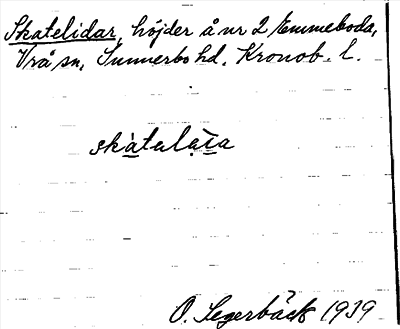 Skatelidar, höjder å nr 2 Emmeboda,
Vrå sn, Sunnerbo hd. Kronob. l.
O. Segerbäck 1939